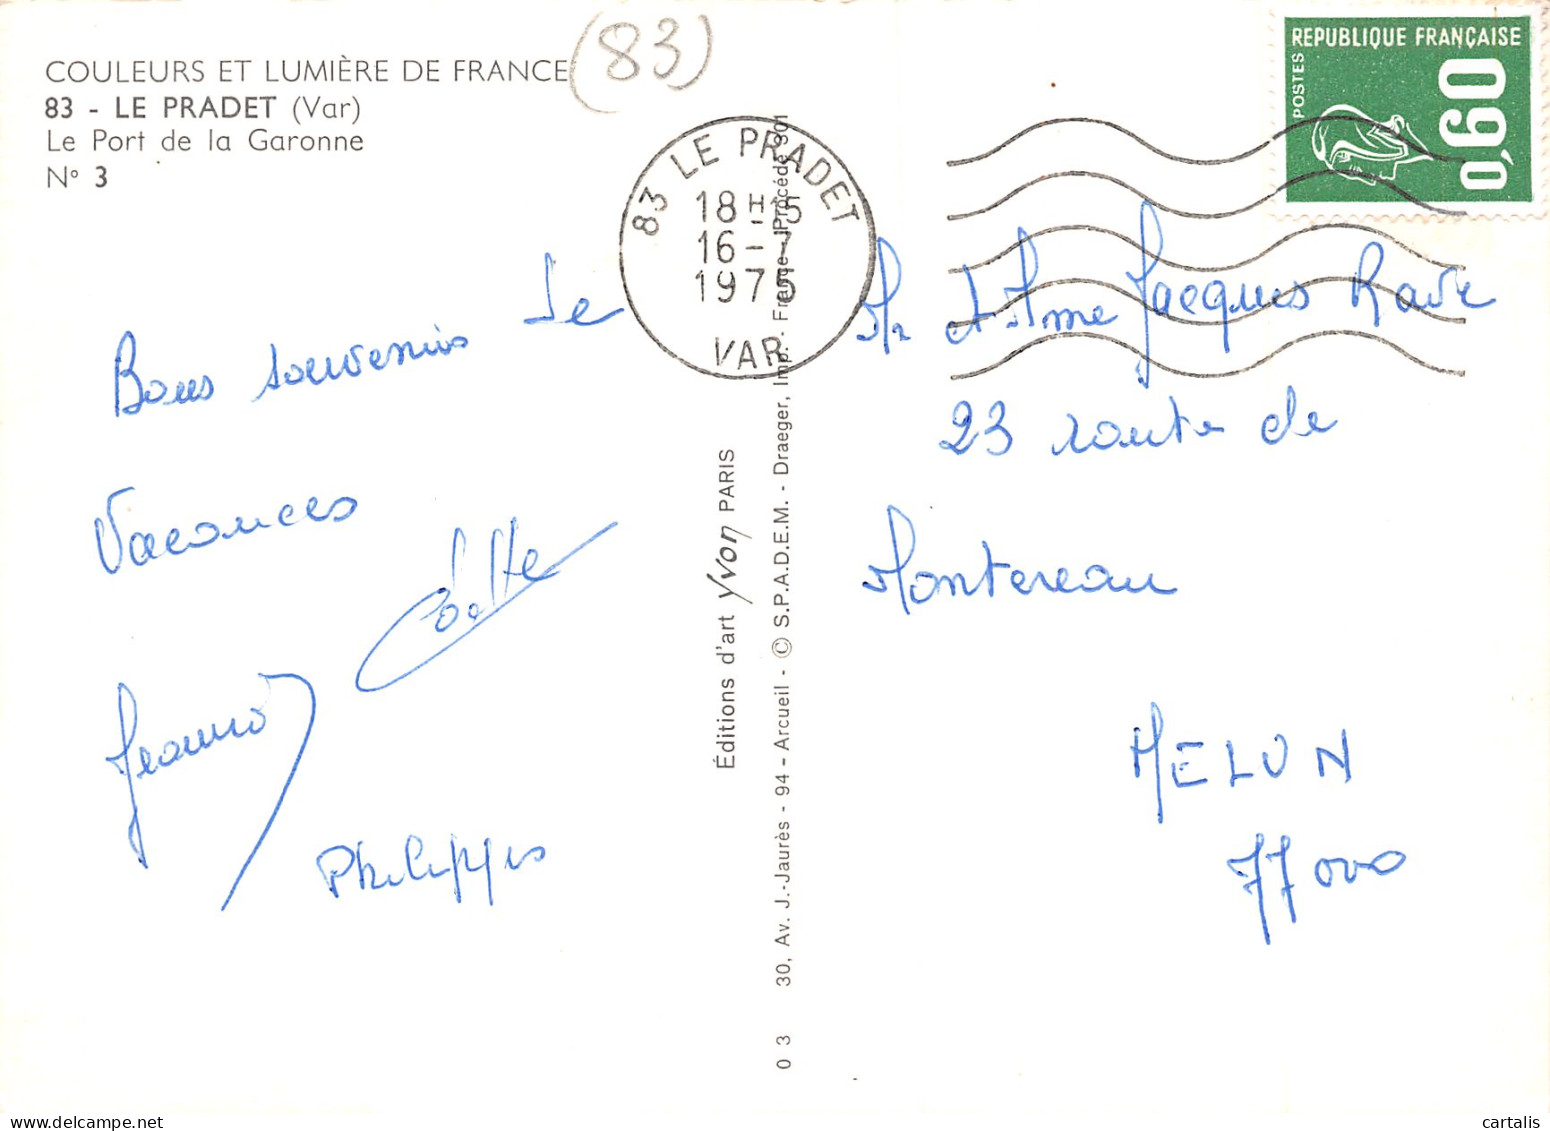 COULEURS ET LUMIÈRE DE FRANCE (83)
83 - LE PRADET (Var)
Le Port de la Garonne
N° 3
Bons souvenirs de
Vacances
Colette
Philippe
83 LE PRADET
18 H 15
16 - 7
1975
VAR
Éditions d'art Yvon PARIS
03 30, Av. J.-Jaurès - 94 - Arcueil - © S.P.A.D.E.M. - Draeger, Imp. France - Procédé 301
REPUBLIQUE FRANÇAISE
POSTES
0,60
Mr et Mme Jacques
23 route de
Montereau
MELUN
77000
cartalis